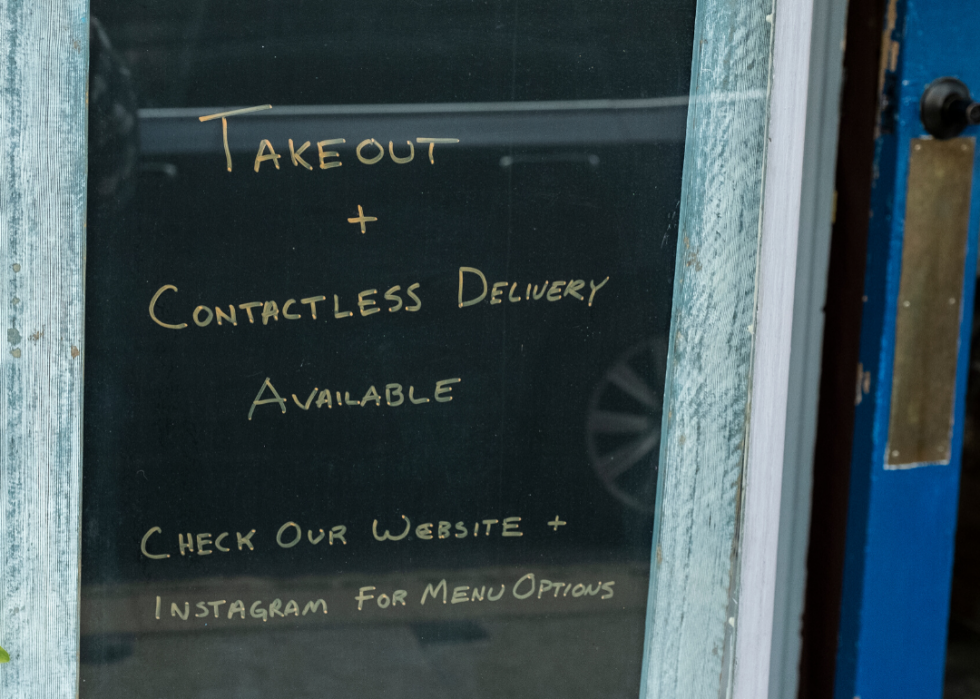 TAKEOUT
+
CONTACTLESS DELIVERY
AVAILABLE
CHECK OUR WEBSITE +
INSTAGRAM FOR MENU OPTIONS